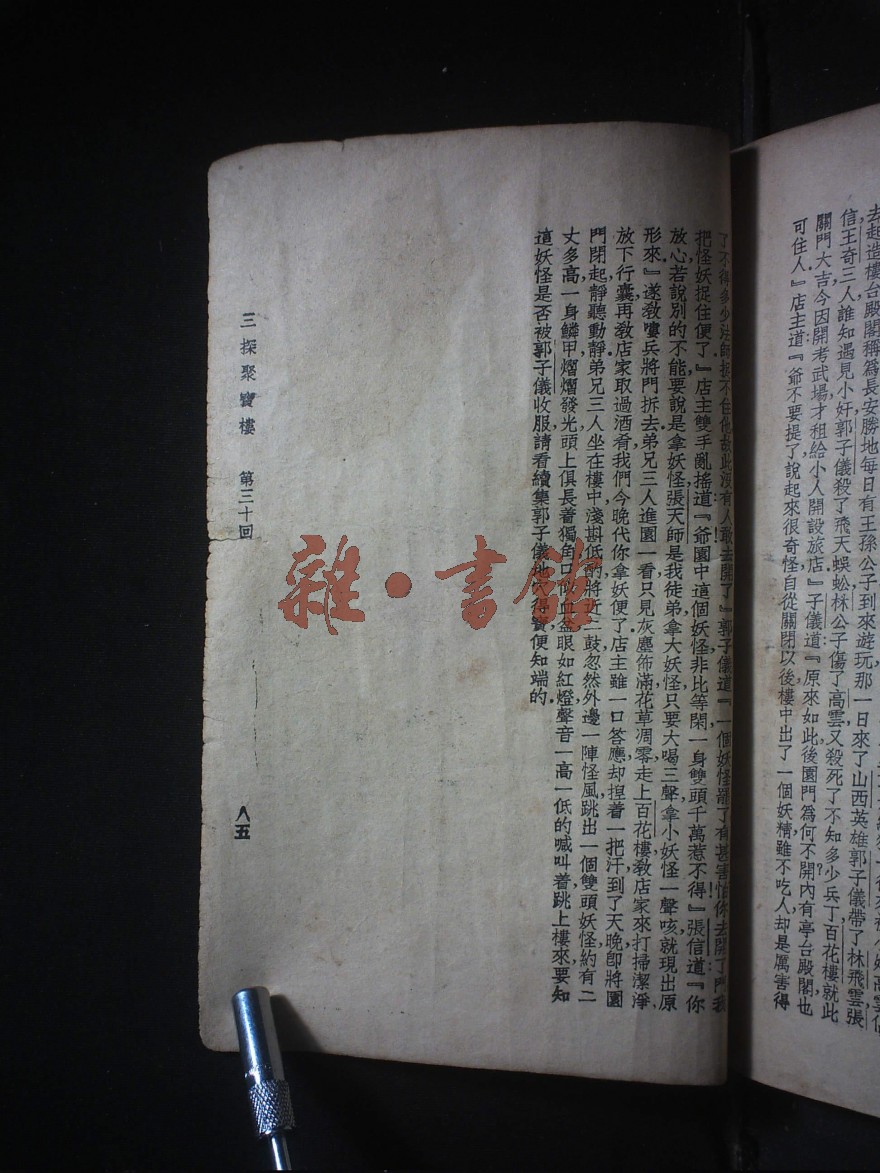 去起造樓台殿閣稱爲長安勝地每日有王孫公子到來遊玩那一日來了山西英雄郭子儀帶了林飛雲張
信王奇三人誰知遇見小奸郭子儀殺了飛天蜈蚣林公子傷了高雲又殺死了不知多少兵丁百花樓就此
關門大吉今因開考武場才租給小人開設旅店』子儀道『原來如此後園門爲何不開內有亭台殿閣也
可住人』店主道『爺不要提了說起來很奇怪自從關閉以後樓中出了一個妖精雖不吃人却是厲害得
了不得多少法師捉不住他故此沒有人敢去開了』郭子儀道『一個妖怪罷了有甚害怕你去開了門我
把怪妖捉住便了』店主雙手亂搖道『爺園中這個妖怪非比等閑一身雙頭千萬惹不得』張信道『你
放心若說別的不能要說是拿妖怪張天師是我徒弟拿大妖怪只要大喝三聲拿小妖怪一聲咳就現出原
形來』遂敎嘍兵將門拆去弟兄三人進園一看只見灰塵佈滿花草凋零走上百花樓敎店家來打掃潔淨
放下行囊再敎店家取過酒肴我們今晚代你拿妖便了店主雖一口答應却揑着一把汗到了天晚卽將園
門閉起靜聽動靜弟兄三人坐在樓中淺斟低酌將近二鼓忽然外邊一陣怪風跳出一個雙頭妖怪約有二
丈多高一身鱗甲熠熠發光頭上俱長着獨角口似血盆眼如紅燈聲音一高一低的喊叫着跳上樓來要知
這妖怪是否被郭子儀收服請看續集郭子儀地穴得寶便知端的
三探聚寶樓 第三十回
八五
雜·書館